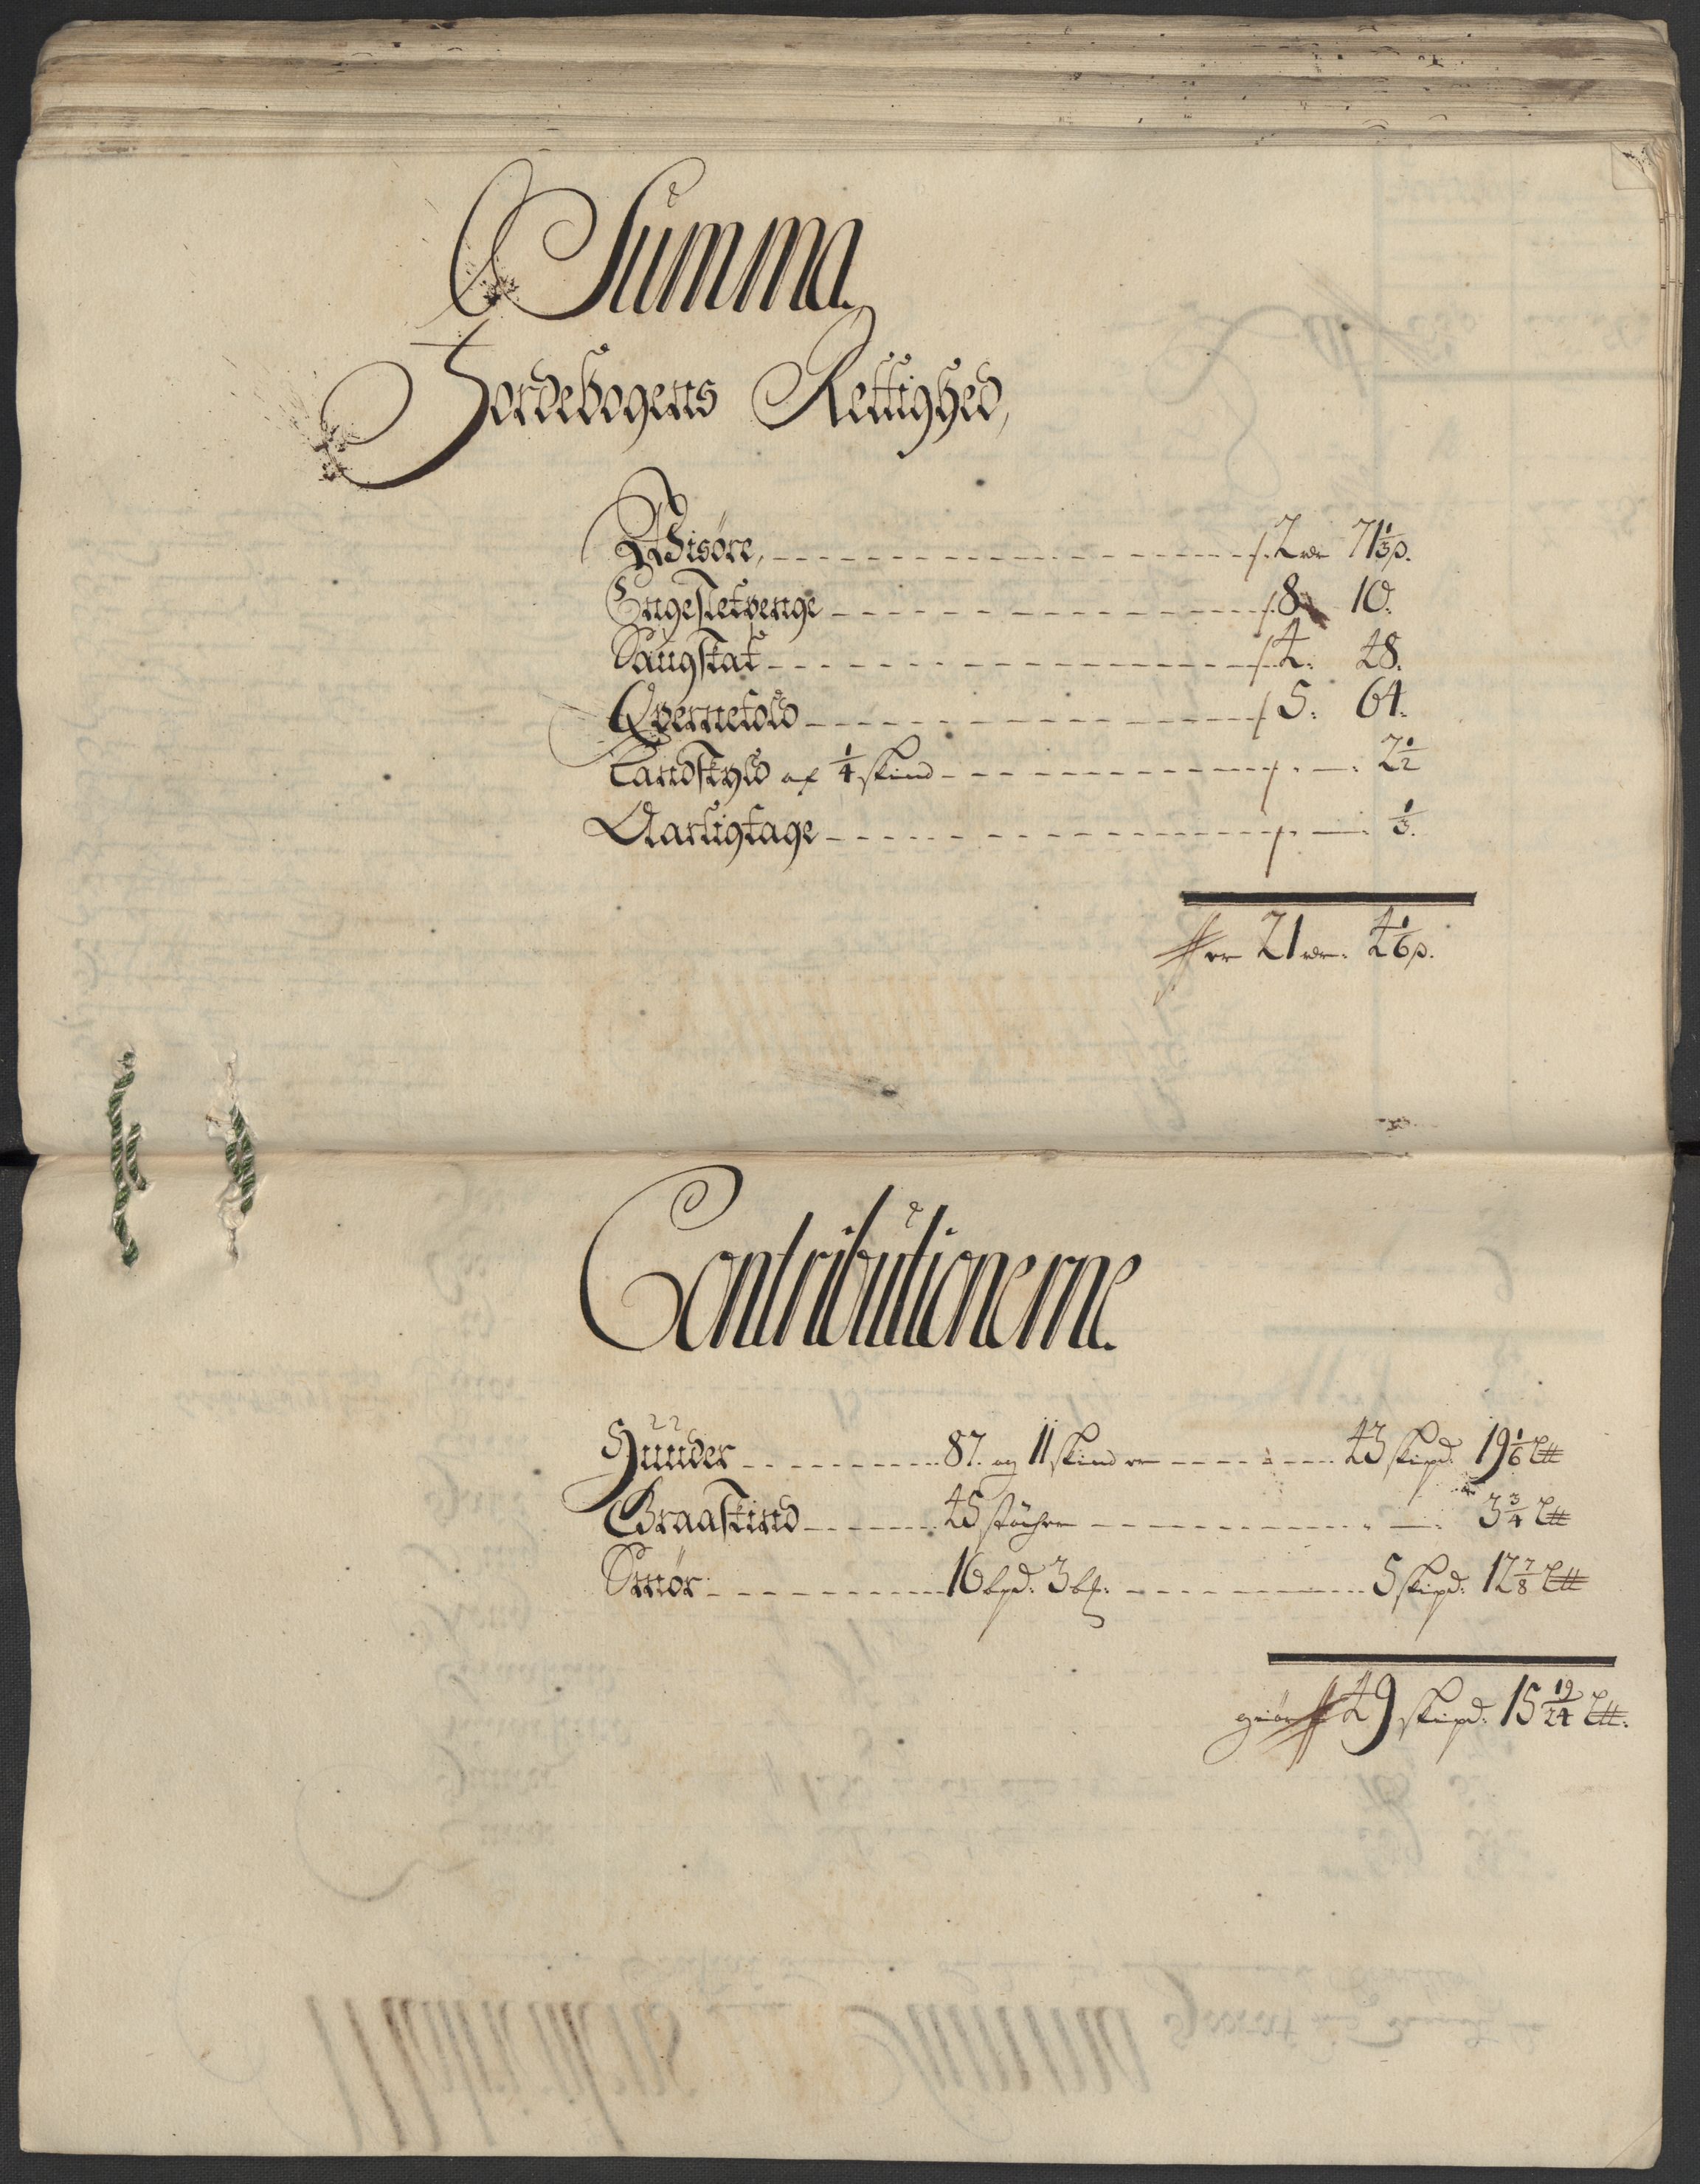 Summa
Jordebogens Rettighed,
Wisøre, 2 rdr 71 1/3 s.
Engesletpenge 8: 10.
Saugskat 4: 48.
Qvernetold 5: 64.
Landskyld af 1/4 skind — : 2 1/2
Aarligtage — : 1/3.
er 21 rdr: 4 1/6 s.
Contributionerne
Huuder 87. og 11 skind er 43 skipd: 19 1/6 ℔
Graaskind 45 støcher — : 3 3/4 ℔
Smør 16 bpd: 3 bl: 5 skipd: 12 7/8 ℔
giør 49 skipd: 15 19/24 ℔.